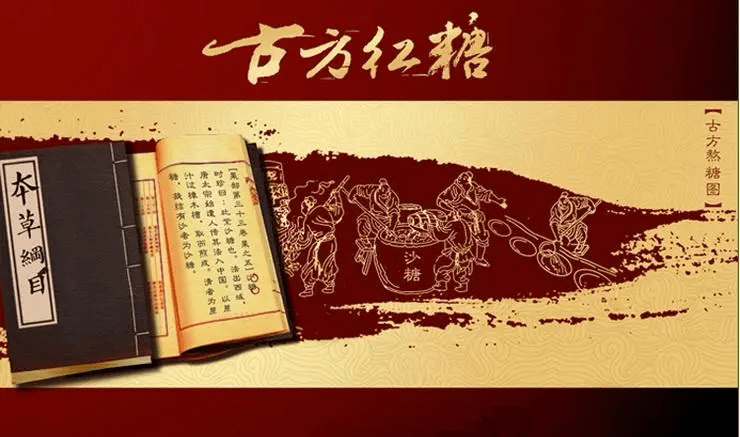 古方红糖
【古方熬糖图】
本草綱目
【果部第三十三卷果之五】沙糖
时珍曰：此紫沙糖也，法出西域，
唐太宗始遣人传其法入中国。以蔗
汁过樟木槽，取而煎成。清者为蔗
糖，凝结有沙者为沙糖。
沙糖